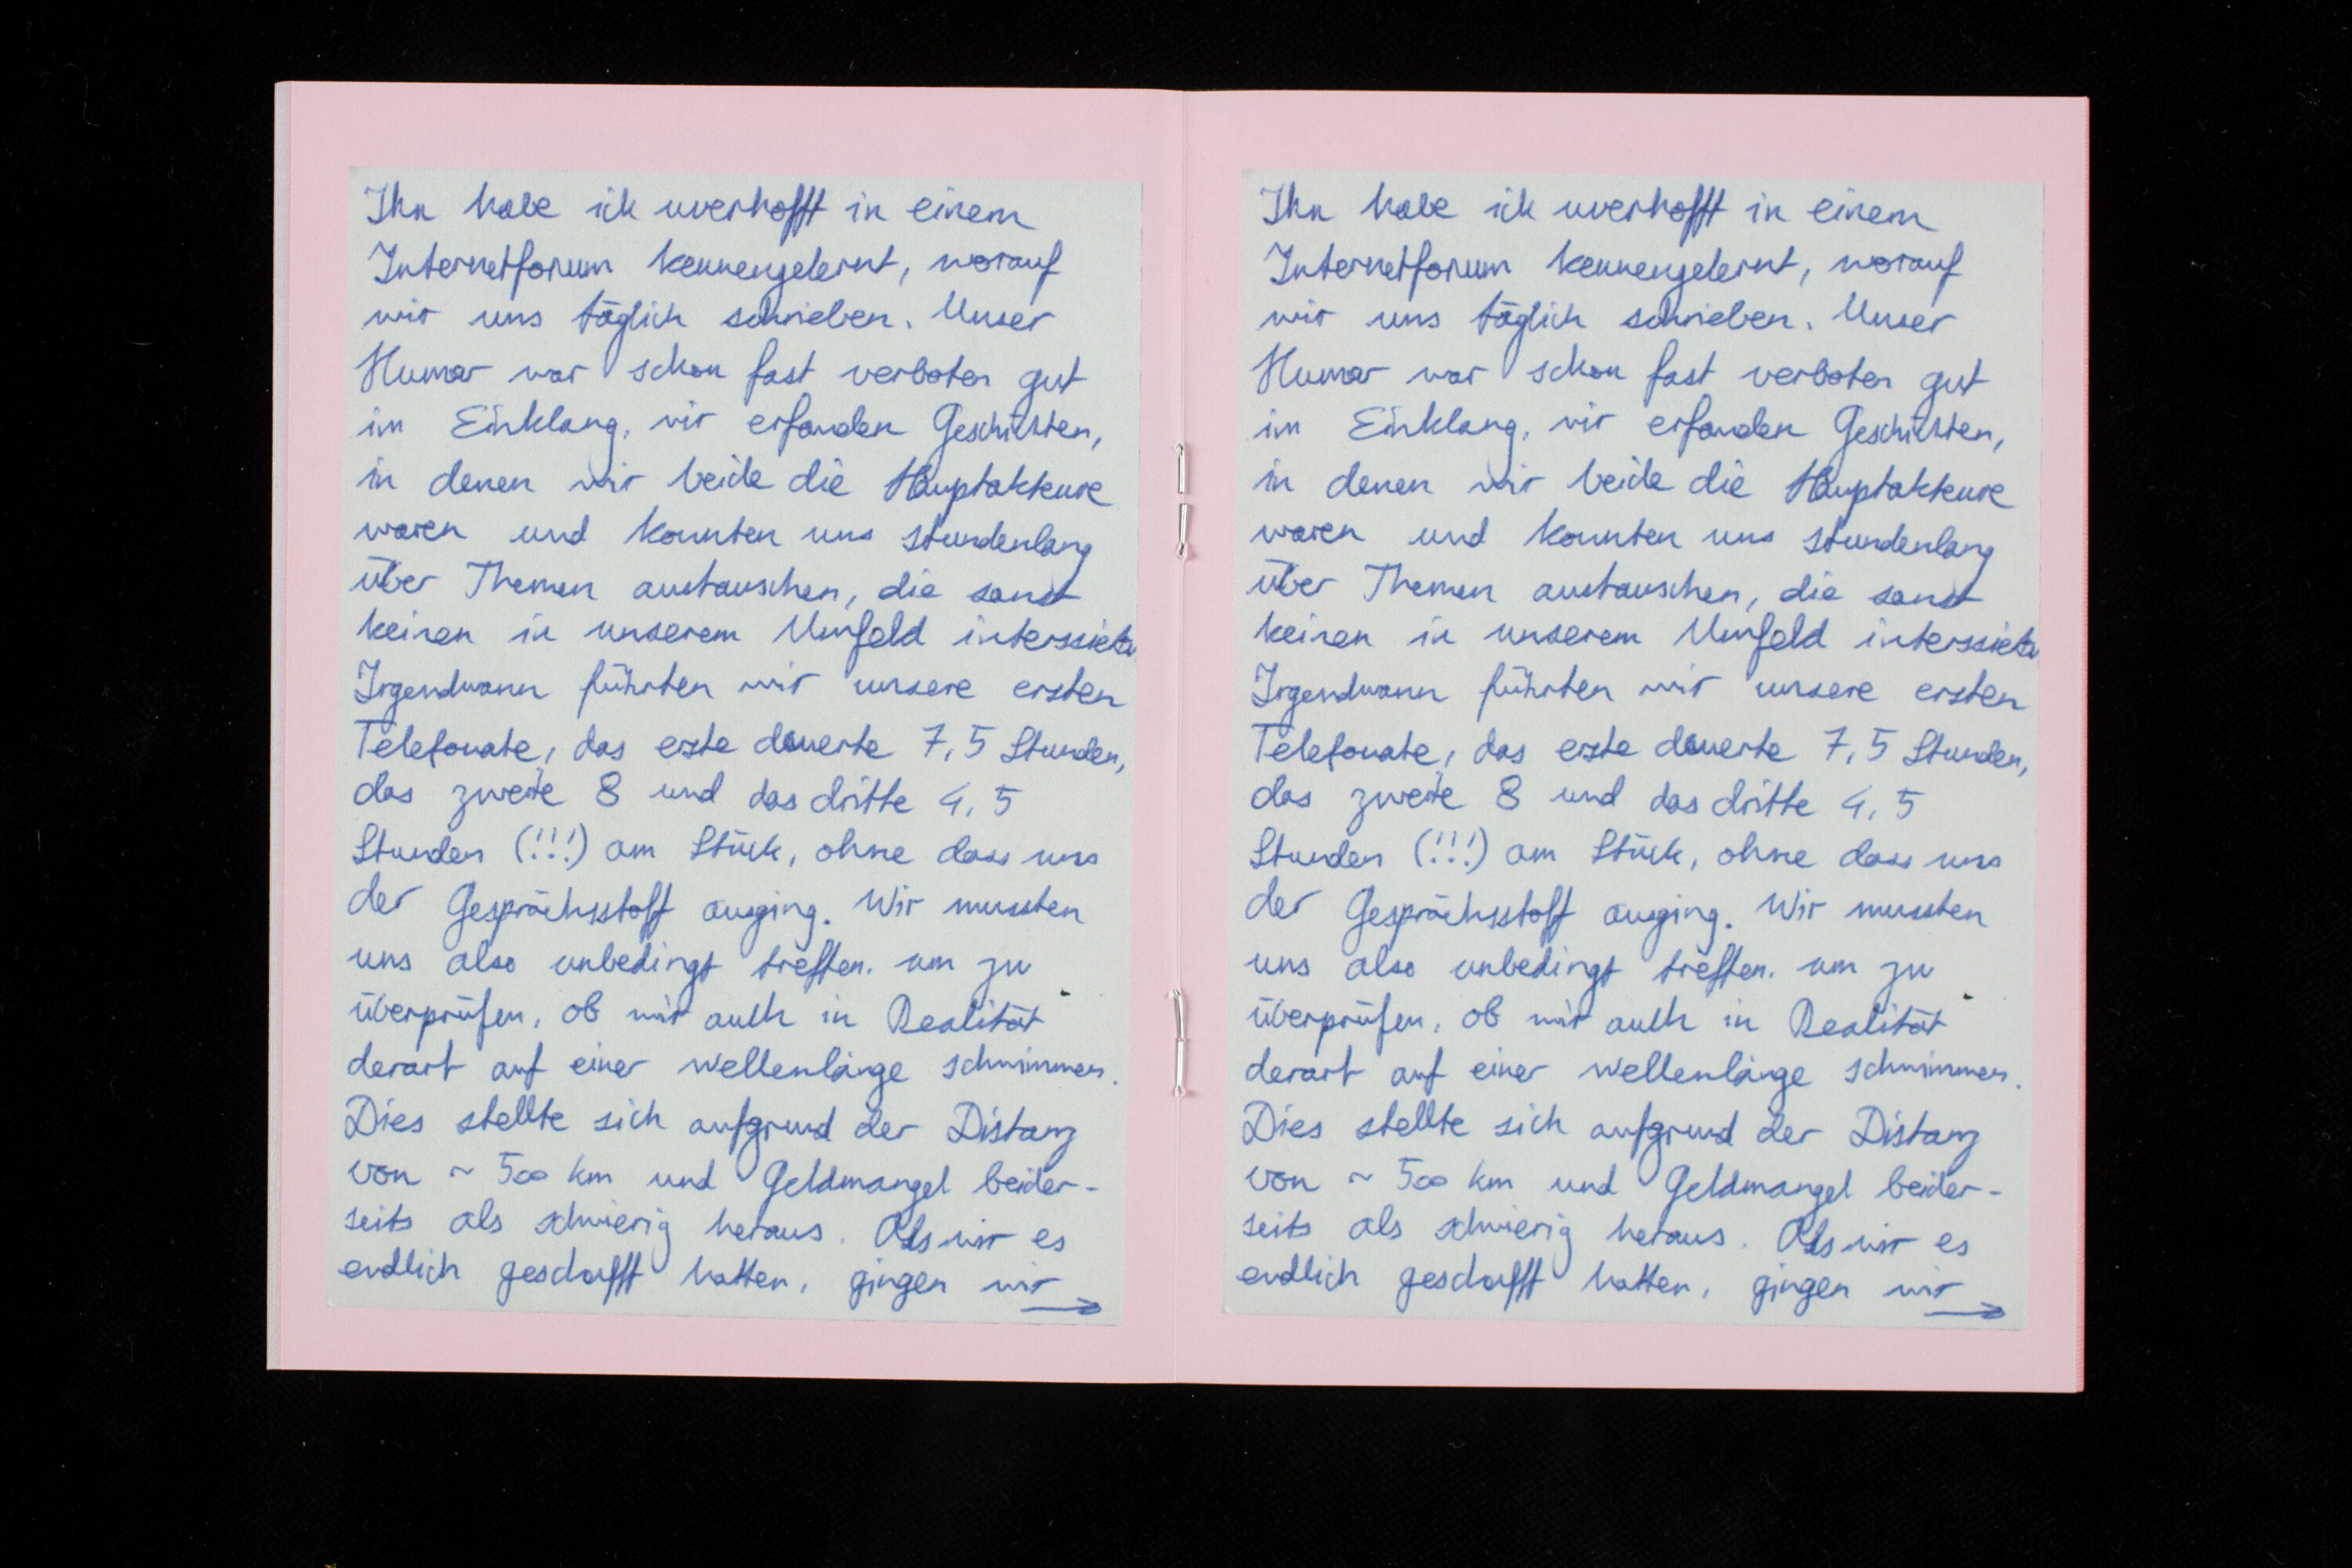 Ihn habe ich uverhofft in einem
Internetforum kennengelernt, worauf
wir uns täglich schrieben. Unser
Humor war schon fast verboten gut
im Einklang, wir erfanden Geschichten,
in denen wir beide die Hauptakteure
waren und konnten uns stundenlang
über Themen austauschen, die sonst
keinen in unserem Umfeld interssierte
Irgendwann führten wir unsere ersten
Telefonate, das erste dauerte 7,5 Stunden,
das zweite 8 und das dritte 4,5
Stunden (!!!) am Stück, ohne dass uns
der Gesprächsstoff ausging. Wir mussten
uns also unbedingt treffen, um zu
überprüfen, ob wir auch in Realität
derart auf einer Wellenlänge schwimmen.
Dies stellte sich aufgrund der Distanz
von ~ 500 km und Geldmangel beider-
seits als schwierig heraus. Als wir es
endlich geschafft hatten, gingen wir →
Ihn habe ich uverhofft in einem
Internetforum kennengelernt, worauf
wir uns täglich schrieben. Unser
Humor war schon fast verboten gut
im Einklang, wir erfanden Geschichten,
in denen wir beide die Hauptakteure
waren und konnten uns stundenlang
über Themen austauschen, die sonst
keinen in unserem Umfeld interssierte
Irgendwann führten wir unsere ersten
Telefonate, das erste dauerte 7,5 Stunden,
das zweite 8 und das dritte 4,5
Stunden (!!!) am Stück, ohne dass uns
der Gesprächsstoff ausging. Wir mussten
uns also unbedingt treffen, um zu
überprüfen, ob wir auch in Realität
derart auf einer Wellenlänge schwimmen.
Dies stellte sich aufgrund der Distanz
von ~ 500 km und Geldmangel beider-
seits als schwierig heraus. Als wir es
endlich geschafft hatten, gingen wir →